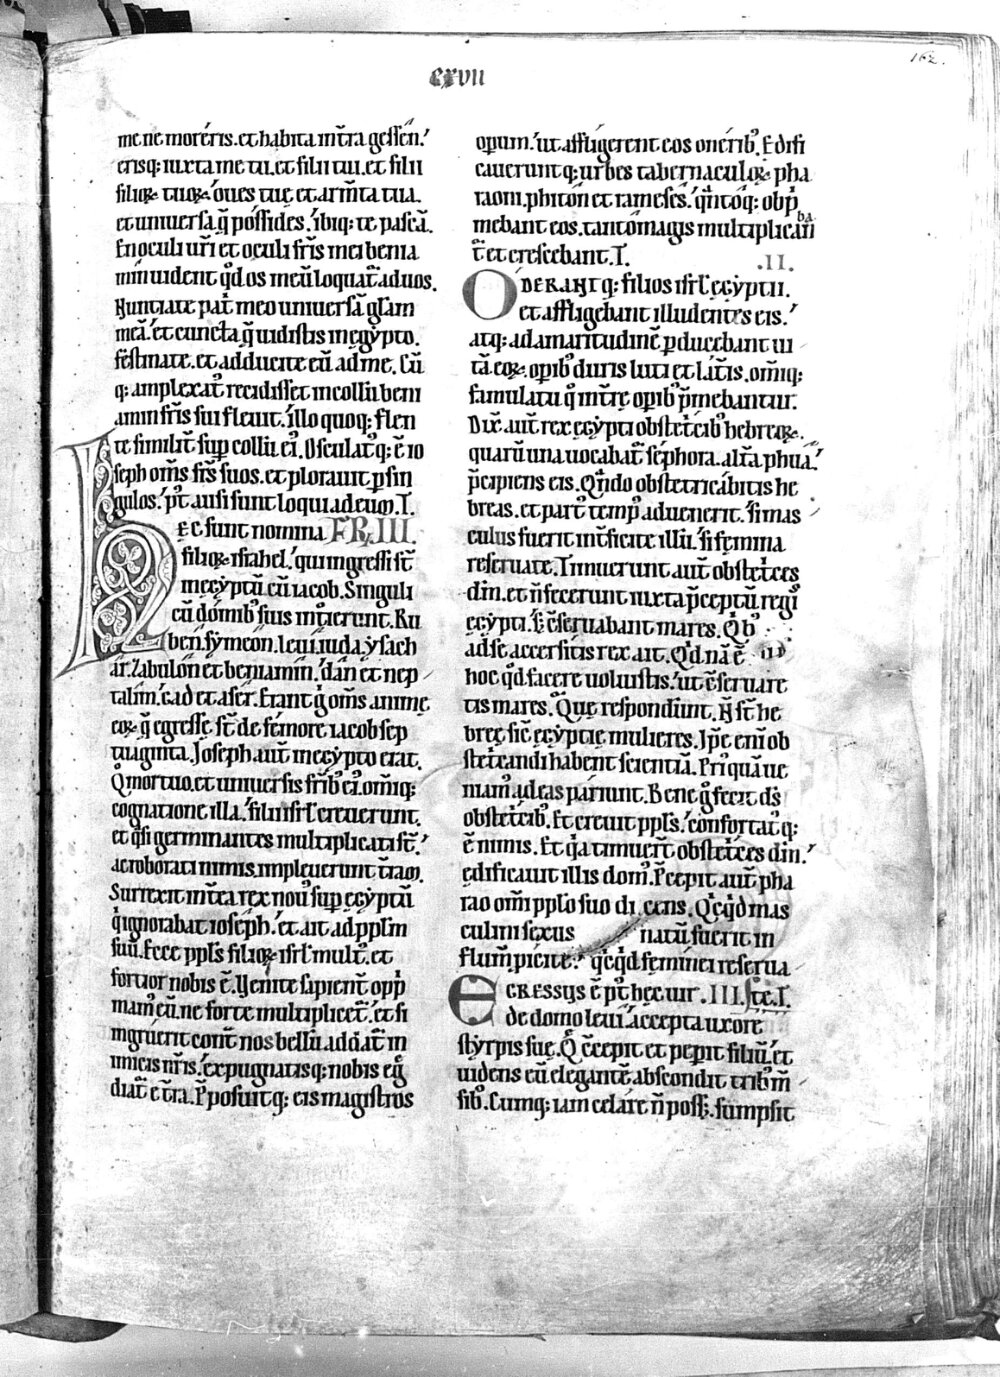 cxvii
162.
me ne moreris. et habita in t̄ra gessen.
erisq; iuxta me tu. et filii tui. et filii
filioꝝ tuoꝝ. oues tuę et arm̄ta tua.
et uniuersa q̄ possides. ibiq; te pascā.
En oculi ur̄i et oculi fr̄is mei benia
min uident qd̄ os meū loquat̄ ad uos.
Nunciate pat̄ meo uniuersā glam
meā. et cuncta q̄ uidistis in egypto.
festinate. et adducite eū ad me. Cū
q; amplexat᷒ recidisset in collū beni
amin fr̄is sui fleuit. illo quoq; flen
te similit̄ sup collū ei᷒. Osculat᷒q; ē io
seph om̄s fr̄s suos. et plorauit ꝑ sin
gulos. p᷒t ausi sunt loqui ad eum. I.
HEC sunt nomina FR̄. III.
filioꝝ israhel. qui ingressi st̄
in egyptū cū iacob. Singuli
cū domib᷒ suis int̄ierunt. Ru
ben. symeon. leui. iuda. ysach
ar. Zabulon et beniamin. dan et nep
talim. Gad et aser. Erant g̊ om̄s animę
eoꝝ q̄ egressę st̄ de femore iacob sep
tuaginta. Ioseph aut̄ in egypto erat.
Q᷒ mortuo. et uniuersis fr̄ib᷒ ei᷒. om̄iq;
cognatione illa. filii isrl̄ creuerunt.
et q̄si germinantes multiplicati st̄.
ac roborati nimis. impleuerunt t̄ram.
Surrexit int̄ea rex nou᷒ sup egyptū
qͥ ignorabat ioseph. et ait ad pplm
suū. Ecce ppls filioꝝ isrl̄ mult᷒. et
fortior nobis ē. Uenite sapient̄ opp
mam᷒ eū. ne forte multiplicet̄. et si
ingruerit cont̄ nos bellū addat̄ in
imicis nr̄is. expugnatisq; nobis eg̊
diat̄ e t̄ra. P̄posuit q; eis magistros
operum. ut affligerent eos oneribꝰ. Edifi
caueruntq; urbes tabernaculoꝝ pha
raoni. phiton et rameses. qͣntoq; opp̄
mebant eos. tanto magis multiplicaban
t̄ et crescebant. I.
.II.
ODERANTq; filios isrl̄ egyptii.
et affligebant illudentes eis.
atq; ad amaritudinē ꝑducebant ui
tā eoꝝ. opib᷒ duris luti et lat̄is. om̄iq;
famulatu q᷒ in t̄rę opib᷒ p̄mebantur.
Dix̄ aut̄ rex egypti obstet̄cib᷒ hebreoꝝ.
quarū una uocabat̄ sephora. alt̄a phua.
p̄cipiens eis. Qn̄do obstetricabitis he
breas. et part᷒ temp᷒ aduenerit. si mas
culus fuerit int̄ficite illū. si femina
reseruate. Timuerunt aut̄ obstet̄ces
dm̄. et n̄ fecerunt iuxta p̄ceptū regis
egypti. S; c̄seruabant mares. Qib᷒
ad se accersitis rex ait. Qd nā ē
hoc qd̄ facere uoluistis. ut c̄seruare
tis mares. Quę respondert̄. N̄ st̄ he
bręę sic̄ egyptię mulieres. Ip̄e eni̅ ob
stetricandi habent scientiā. Priusquā ue
niam᷒ ad eas pariunt. Bene g̊ fecit ds̄
obstet̄cib᷒. Et creuit ppls. confortat᷒q;
ē nimis. Et qͣ timuert̄ obstet̄ces dm̄.
edificauit illis dom᷒. P̄cepit aut̄ pha
rao om̄i pplo suo di cens. Qͥcqͥd mas
culini sexus natū fuerit in
flum̄. ꝓicite. qͥcqͥd feminei reserua
EGRESSUS ē p᷒t hec uir .III. .I.
de domo leui. accepta uxore
styrpis suę. Q̄ c̄cepit et peꝑit filiū. et
uidens eū elegantē. abscondit trib᷒ m̄
sib᷒. Cumq; iam celare n̄ poss;. sumpsit